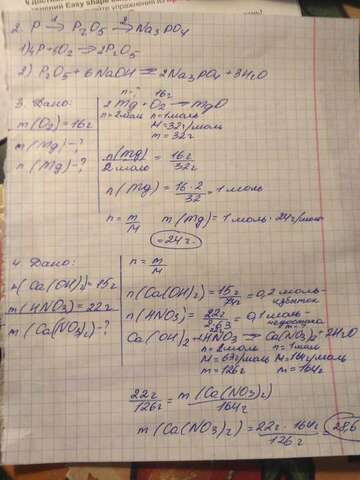 2. P →¹ P₂O₅ →² Na₃PO₄
1) 4P + 5O₂ → 2P₂O₅
2) P₂O₅ + 6NaOH = 2Na₃PO₄ + 3H₂O
3. Дано:
m(O₂) = 16г
m(Mg) - ?
n(Mg) - ?
n=? 16г
2Mg + O₂ → MgO
n=2моль n=1моль
M=32г/моль
m=32г
n(Mg)/2моль = 16г/32г
n(Mg) = 16·2/32 = 1моль
n = m/M m(Mg) = 1моль·24г/моль
= 24г.
4. Дано:
m(HNO₃) = 22г
m(Ca(NO₃)₂) - ?
n = m/M
n(Ca(OH)₂) = 15г/74 = 0,2моль -
избыток
недостаток
n=2моль n=1моль
M=63г/моль M=164г/моль
m=126г m=164г
22г/126г = m(Ca(NO₃)₂)/164г
m(Ca(NO₃)₂) = 22г·164г/126г = 28,6